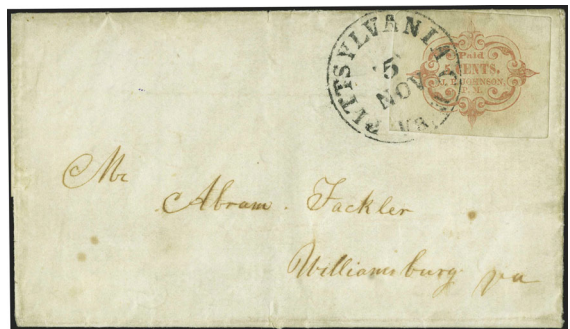 PITTSYLVANIA C.H. Va.
5
NOV
Paid
5 CENTS.
J. P. JOHNSON,
P. M.
Mr
Abram Fackler
Williamsburg pa